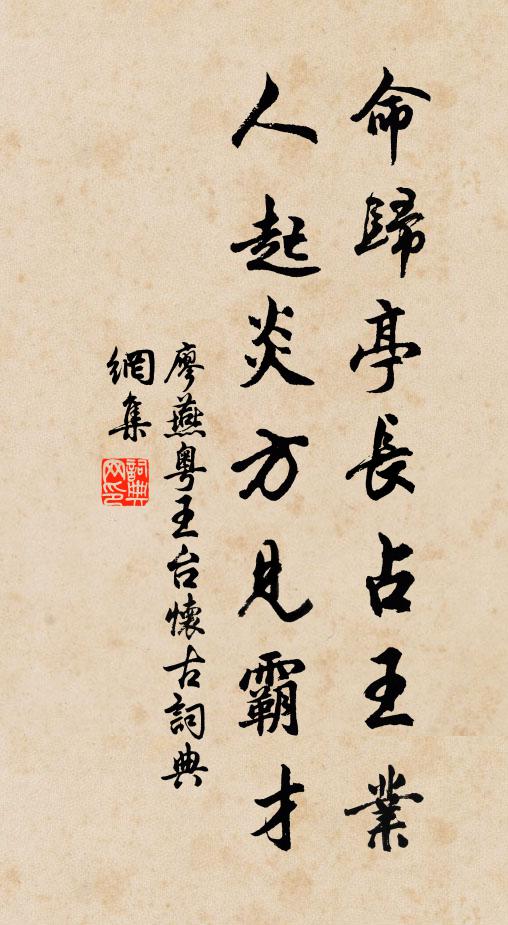 命歸亭長占王業
人起炎方見霸才
廖燕粵王台懷古詞典
網集
詞典
网印